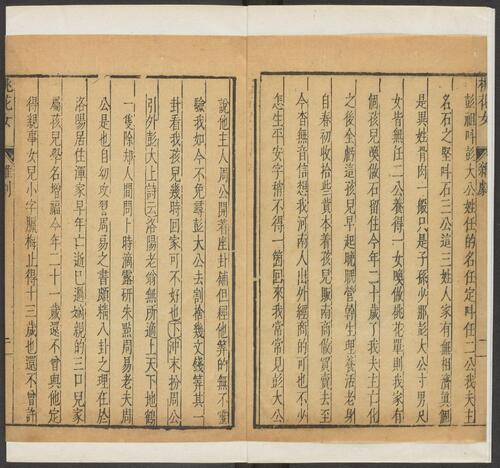 桃花女
雜劇
彭祖呌彭大公姓任的名任定呌任二公我夫主
名石之堅呌石三公這三姓人家有無相濟眞個
是異姓骨肉一般只是子孫少那彭大公寸男尺
女皆無任二公養得一女喚做桃花單則我家有
個孩兒喚做石留住今年二十歲了我夫主亡化
之後全虧這孩兒早起晚夕營幹生理養活老身
自春初收拾些貲本着孩兒販南商做買賣去至
今杳無音信想我河南人出外經商的可也不少
怎生平安字稍不得一箇回來我常常見彭大公
說他主人周公開着座卦鋪但經他算的無不靈
驗我如今不免尋彭大公去割捨幾文錢算其一
卦看我孩兒幾時回家可不好也下沖末扮周公
引外彭大上詩云洛陽老翁無所適上天下地鶴
一隻除却人間問卜時滴露研朱點周易老夫周
公是也自幼攻習周易之書頗精八卦之理在於
洛陽居住渾家早年亡逝已過嫡親的三口兒家
屬孩兒學名增福今年二十一歲還不曾與他定
得親事女兒小字臘梅止得十三歲也還不曾許
桃花女
雜劇
二